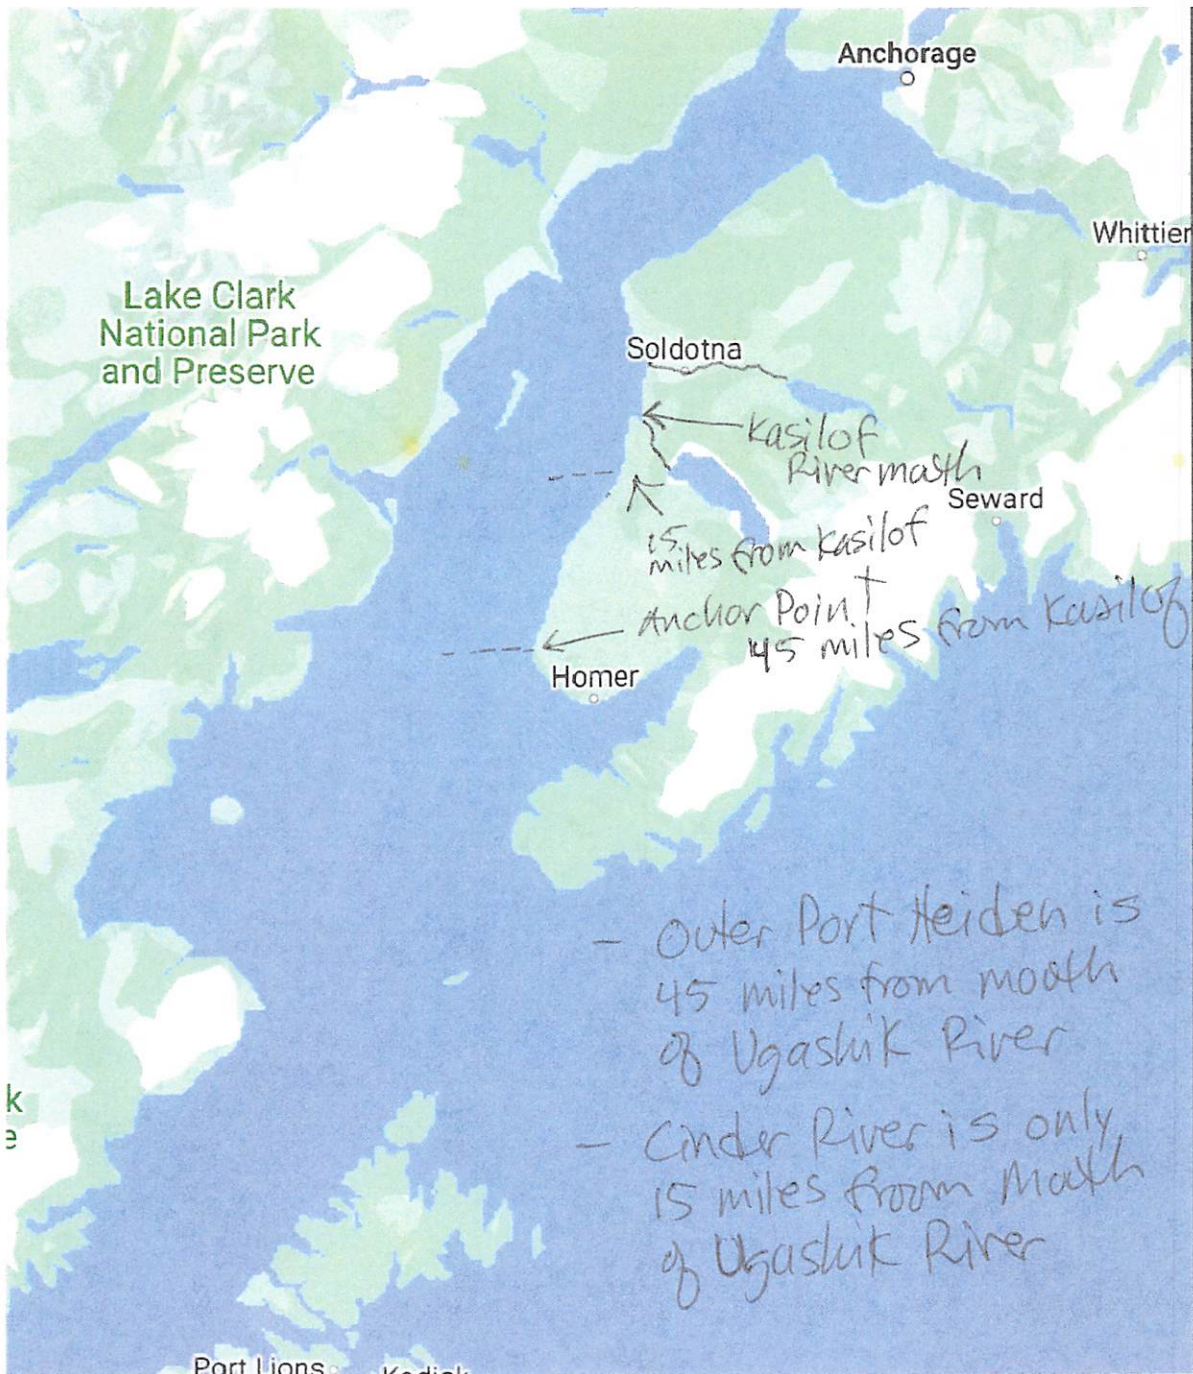 Anchorage
Whittier
Lake Clark
National Park
and Preserve
Soldotna
Kasilof
River maoth
Seward
15
miles from Kasilof
Anchor Point
45 miles from Kasilof
Homer
- Outer Port Heiden is
45 miles from mouth
of Ugashik River
k
e
- Cinder River is only
15 miles froom Maoth
of Ugashik River
Port Lions
Kodiak